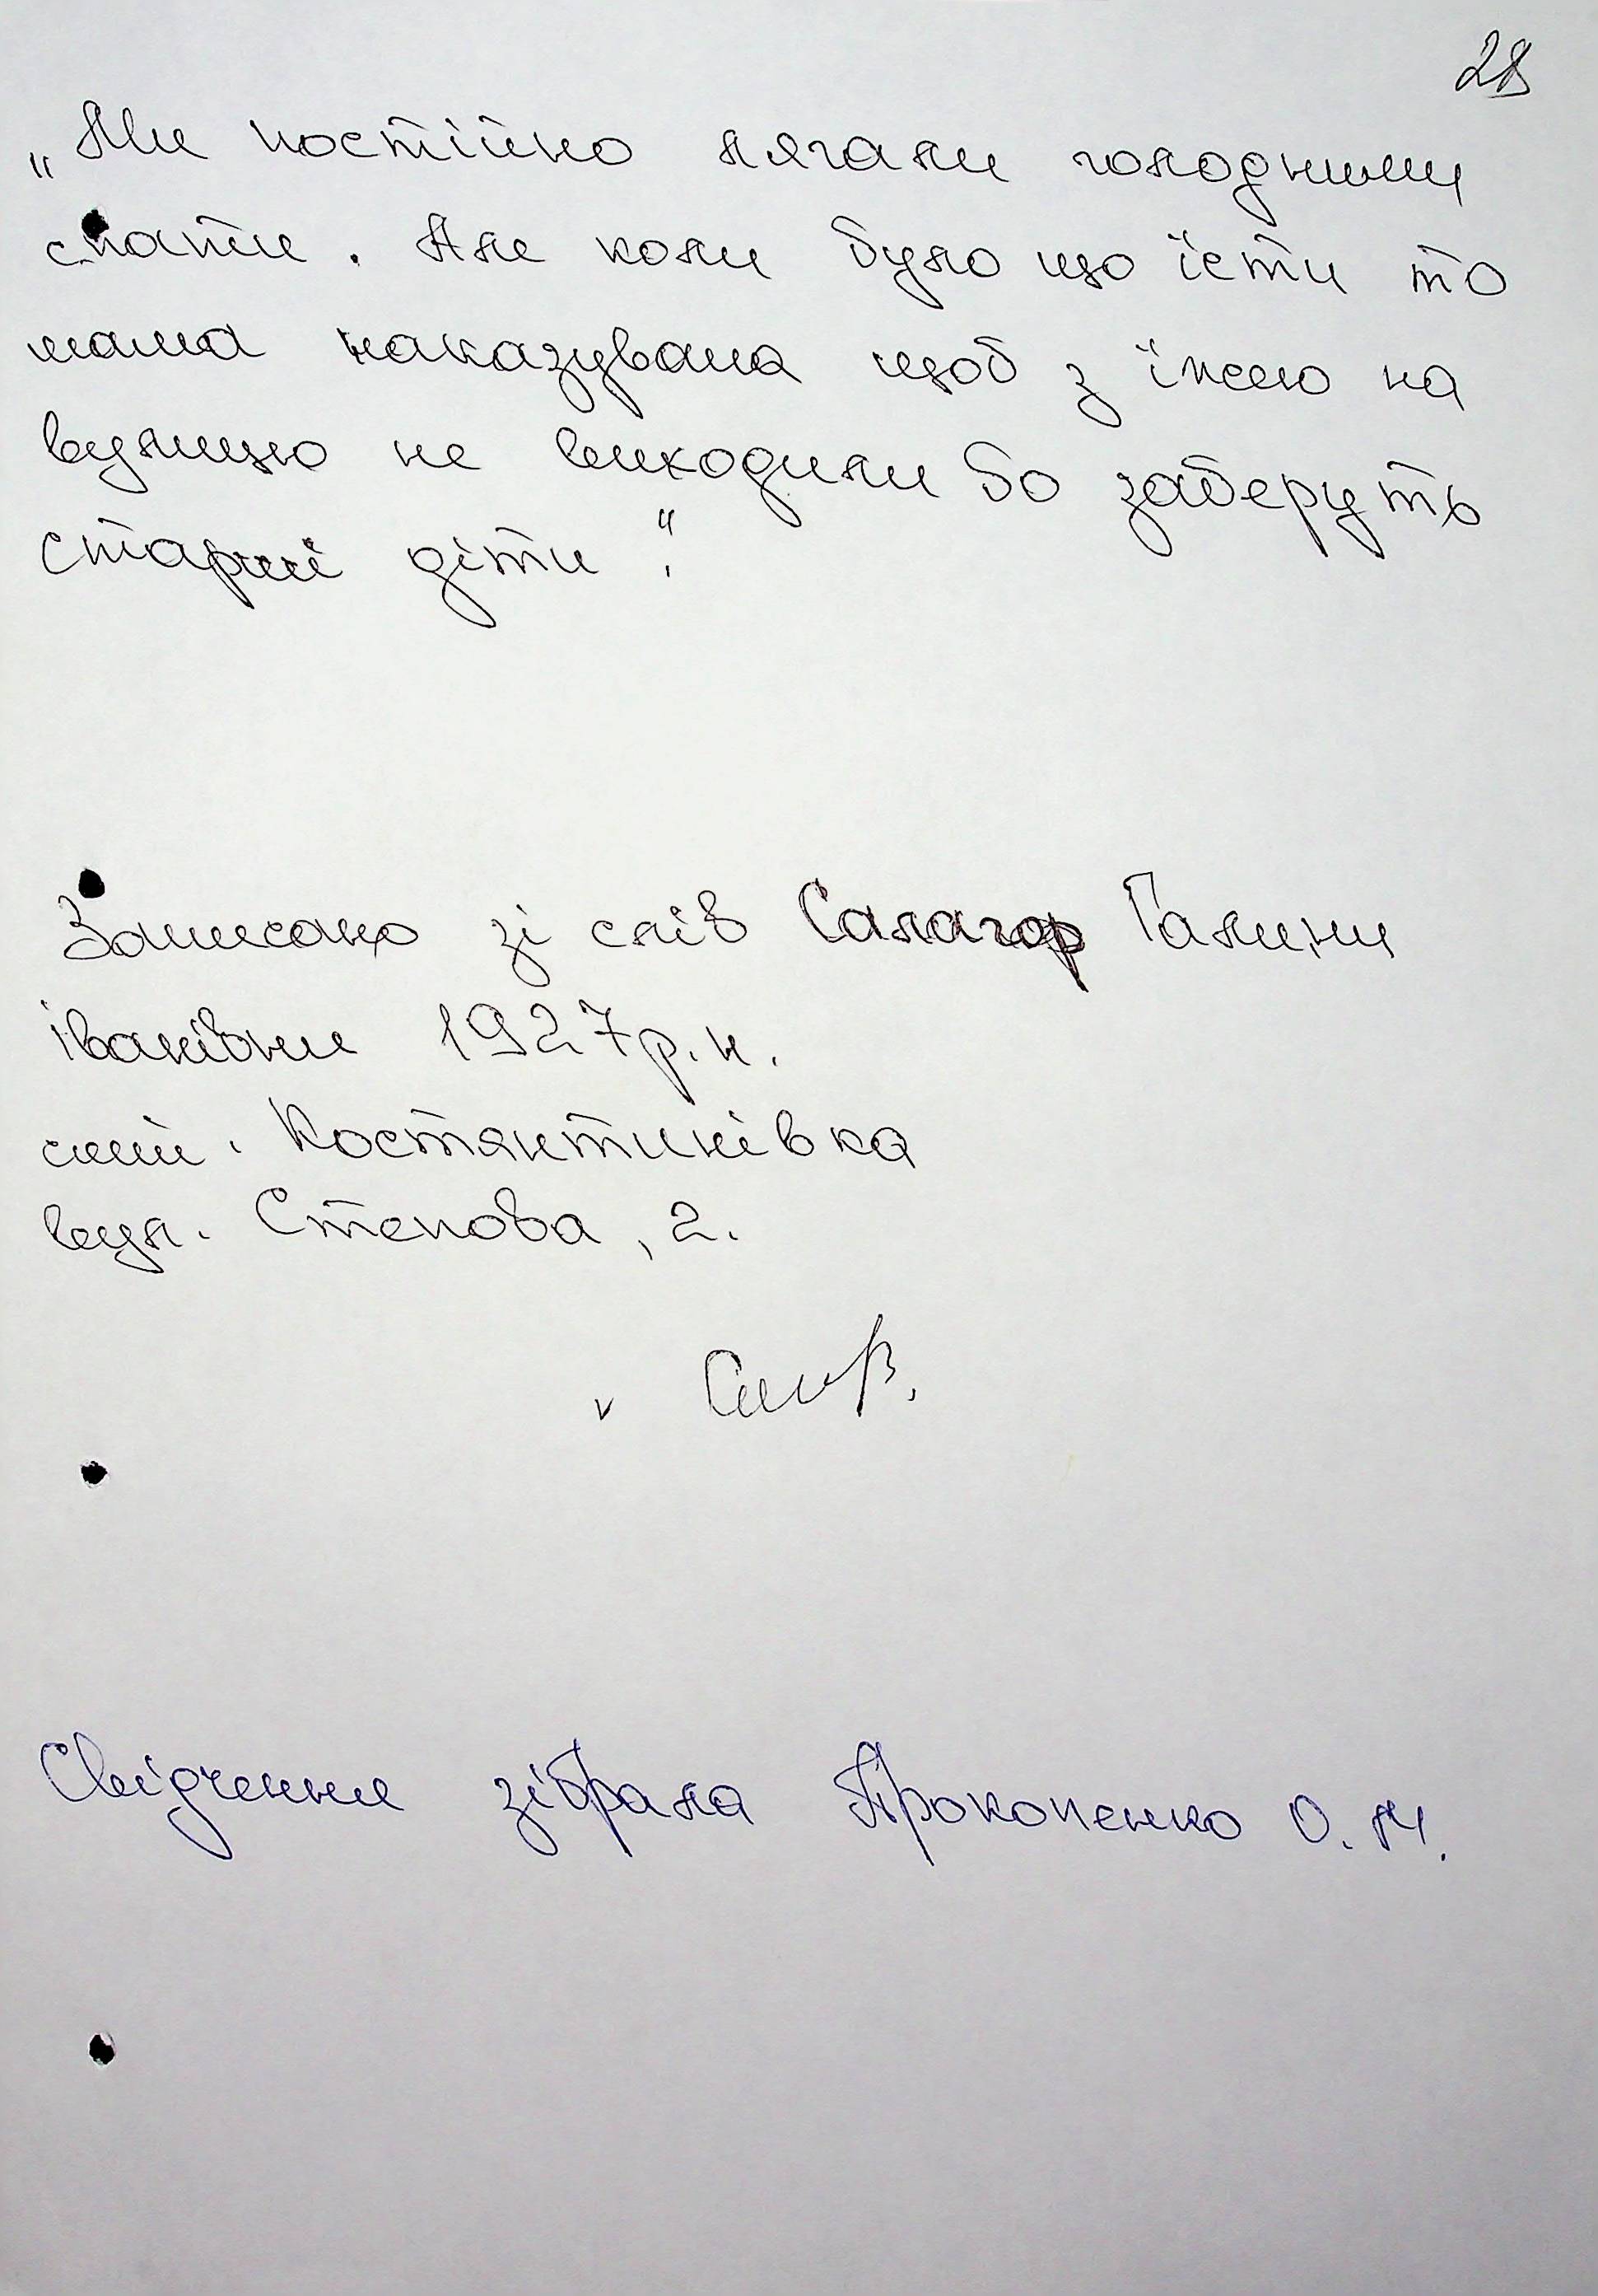 28
„Ми постійно лягали голодними
спати. Але коли було що їсти то
мама наказувала щоб з їжею на
вулицю не виходили бо заберуть
старші діти".
Записано зі слів Салагор Галини
Іванівни 1927р.н.
смт. Костянтинівка
вул. Степова, 2.
Свідчення зібрала Прокопенко О.М.